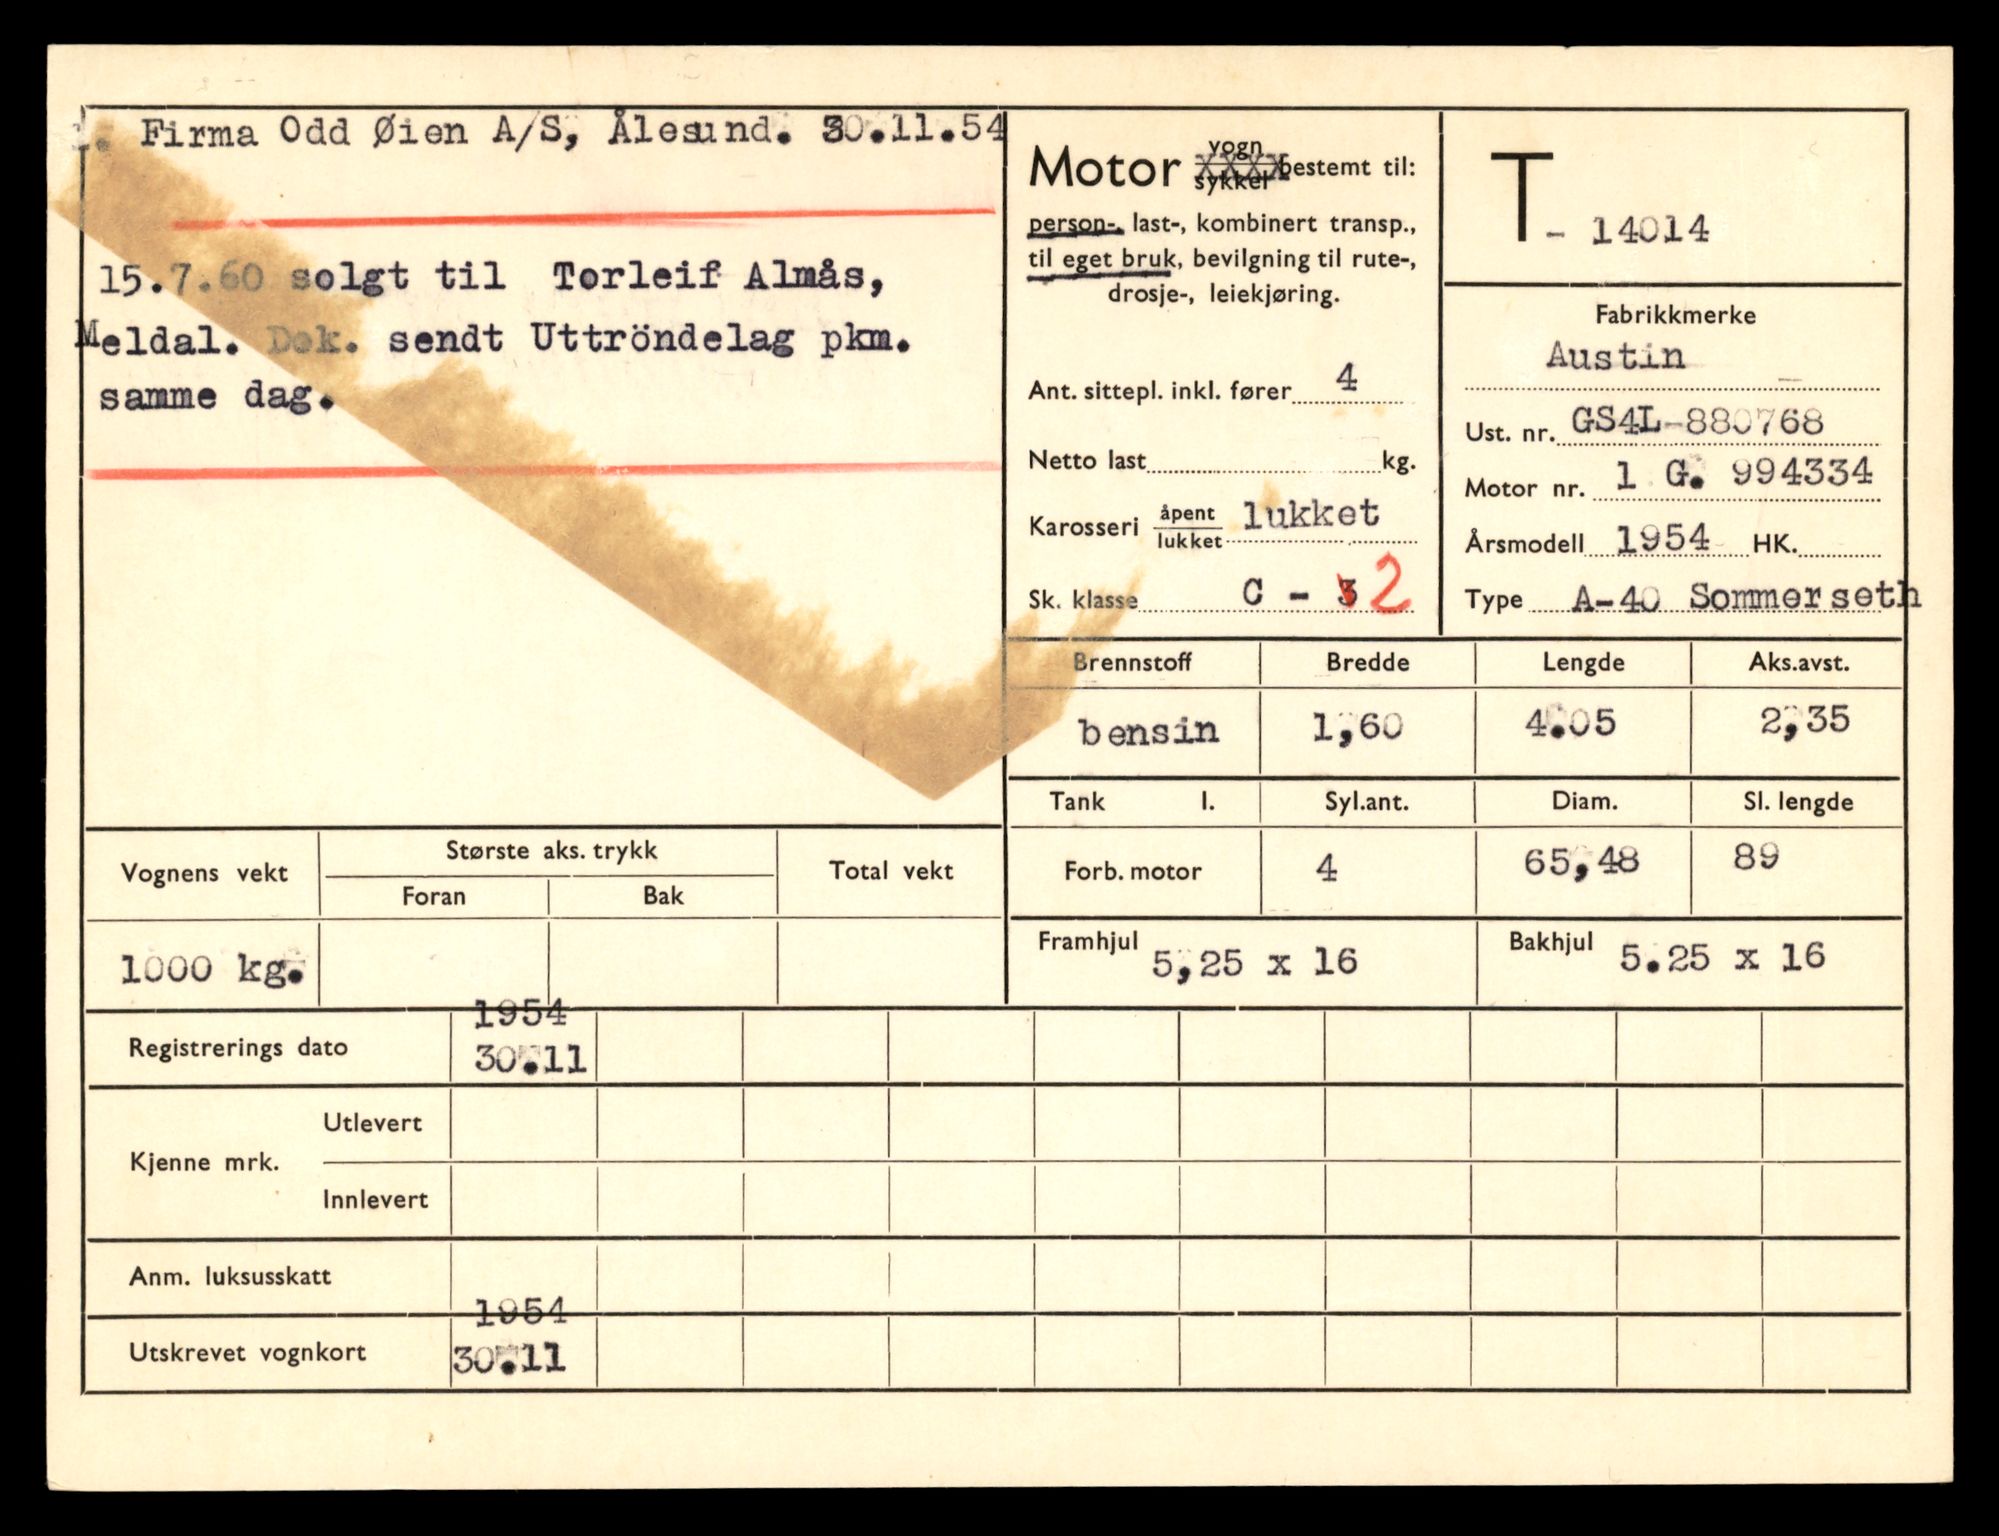 Firma Odd Øien A/S, Ålesund. 30.11.54
15.7.60 solgt til Torleif Almås,
Meldal. Dok. sendt Uttröndelag pkm.
samme dag.
Motor vogn bestemt til:
sykkel
person-, last-, kombinert transp.,
til eget bruk, bevilgning til rute-,
drosje-, leiekjøring.
Ant. sittepl. inkl. fører 4
Netto last kg.
Karosseri åpent lukket
lukket
Sk. klasse C - 3 2
T - 14014
Fabrikkmerke
Austin
Ust. nr. GS4L-880768
Motor nr. 1 G. 994334
Årsmodell 1954 HK.
Type A-40 Sommerseth
Brennstoff Bredde Lengde Aks.avst.
bensin 1,60 4.05 2,35
Tank l. Syl.ant. Diam. Sl. lengde
Forb. motor 4 65,48 89
Framhjul 5,25 x 16 Bakhjul 5.25 x 16
Vognens vekt Største aks. trykk Total vekt
Foran Bak
1000 kg.
1954
Registrerings dato 30.11
Utlevert
Kjenne mrk.
Innlevert
Anm. luksusskatt
1954
Utskrevet vognkort 30.11